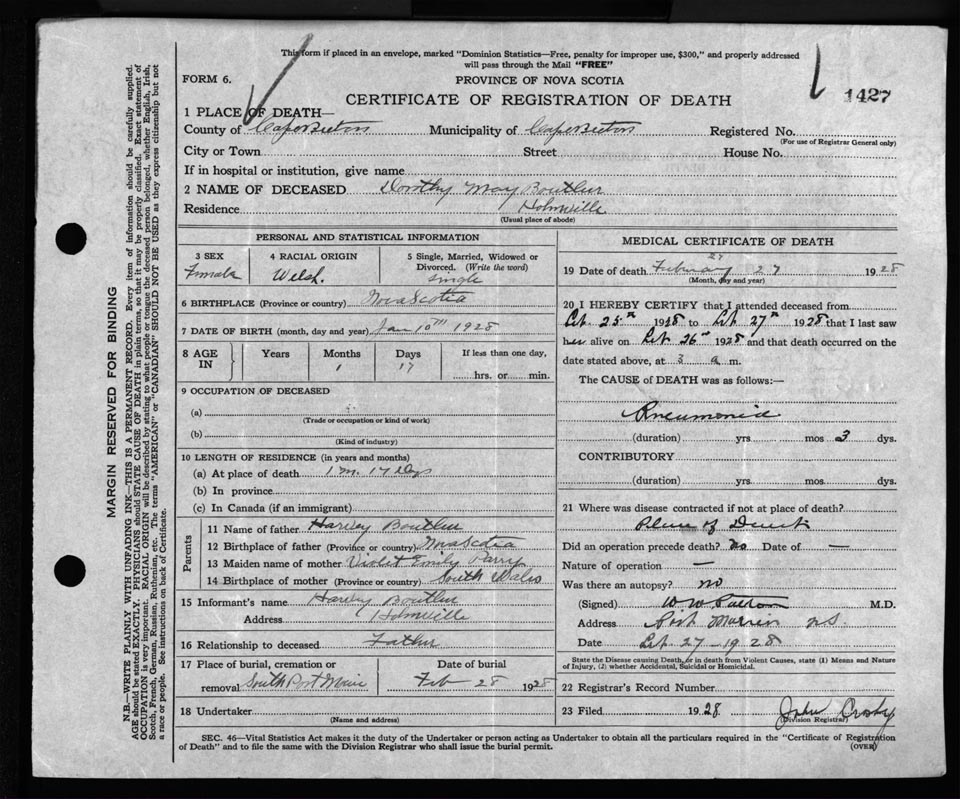 This form if placed in an envelope, marked "Dominion Statistics—Free, penalty for improper use, $300," and properly addressed
will pass through the Mail "FREE"
FORM 6.
PROVINCE OF NOVA SCOTIA
CERTIFICATE OF REGISTRATION OF DEATH
1427
1 PLACE OF DEATH—
County of Cape Breton Municipality of Cape Breton Registered No.
(For use of Registrar General only)
City or Town Street House No.
If in hospital or institution, give name
2 NAME OF DECEASED Dorothy May Boutlier
Residence
(Usual place of abode)
PERSONAL AND STATISTICAL INFORMATION
3 SEX 4 RACIAL ORIGIN 5 Single, Married, Widowed or
Divorced. (Write the word)
Female Welsh. single
6 BIRTHPLACE (Province or country) Nova Scotia
7 DATE OF BIRTH (month, day and year) Jan 10th 1928
8 AGE IN Years Months Days If less than one day,
1 17 hrs. or min.
9 OCCUPATION OF DECEASED
(a)
(Trade or occupation or kind of work)
(b)
(Kind of industry)
10 LENGTH OF RESIDENCE (in years and months)
(a) At place of death 1 m. 17 Dys
(b) In province
(c) In Canada (if an immigrant)
Parents
11 Name of father Harvey Boutlier
12 Birthplace of father (Province or country) Nova Scotia
13 Maiden name of mother Violet Emily Parry
14 Birthplace of mother (Province or country) South Wales
15 Informant's name Harvey Boutlier
Address
16 Relationship to deceased Father
17 Place of burial, cremation or Date of burial
removal South Port Morien Feb 28 1928
18 Undertaker
(Name and address)
MEDICAL CERTIFICATE OF DEATH
27
19 Date of death February 27 1928
(Month, day and year)
20 I HEREBY CERTIFY that I attended deceased from
Feb. 25th 1928 to Feb. 27th 1928 that I last saw
her alive on Feb. 26th 1928 and that death occurred on the
date stated above, at 3 a m.
The CAUSE of DEATH was as follows:—
Pneumonia
(duration) yrs. mos 3 dys.
CONTRIBUTORY
(duration) yrs. mos. dys.
21 Where was disease contracted if not at place of death?
Place of Death
Did an operation precede death? no Date of —
Nature of operation —
Was there an autopsy? no
(Signed) W. W. M.D.
Address Port Morien N.S.
Date Feb. 27—1928
State the Disease causing Death, or in death from Violent Causes, state (1) Means and Nature
of Injury, (2) whether Accidental, Suicidal or Homicidal.
22 Registrar's Record Number
23 Filed 1928 John Crosby
(Division Registrar)
SEC. 46—Vital Statistics Act makes it the duty of the Undertaker or person acting as Undertaker to obtain all the particulars required in the "Certificate of Registration
of Death" and to file the same with the Division Registrar who shall issue the burial permit. (OVER)
MARGIN RESERVED FOR BINDING
N.B.—WRITE PLAINLY WITH UNFADING INK—THIS IS A PERMANENT RECORD. Every item of information should be carefully supplied.
AGE should be stated EXACTLY. PHYSICIANS should STATE CAUSE OF DEATH in plain terms, so that it may be properly classified. Exact statement of
OCCUPATION is very important. RACIAL ORIGIN will be described by stating to what people or tongue the deceased person belonged, whether English, Irish,
Scotch, French, German, Russian, Ruthenian, etc. The terms "AMERICAN" or "CANADIAN" SHOULD NOT BE USED as they express citizenship but not
a race or people. See instructions on back of Certificate.